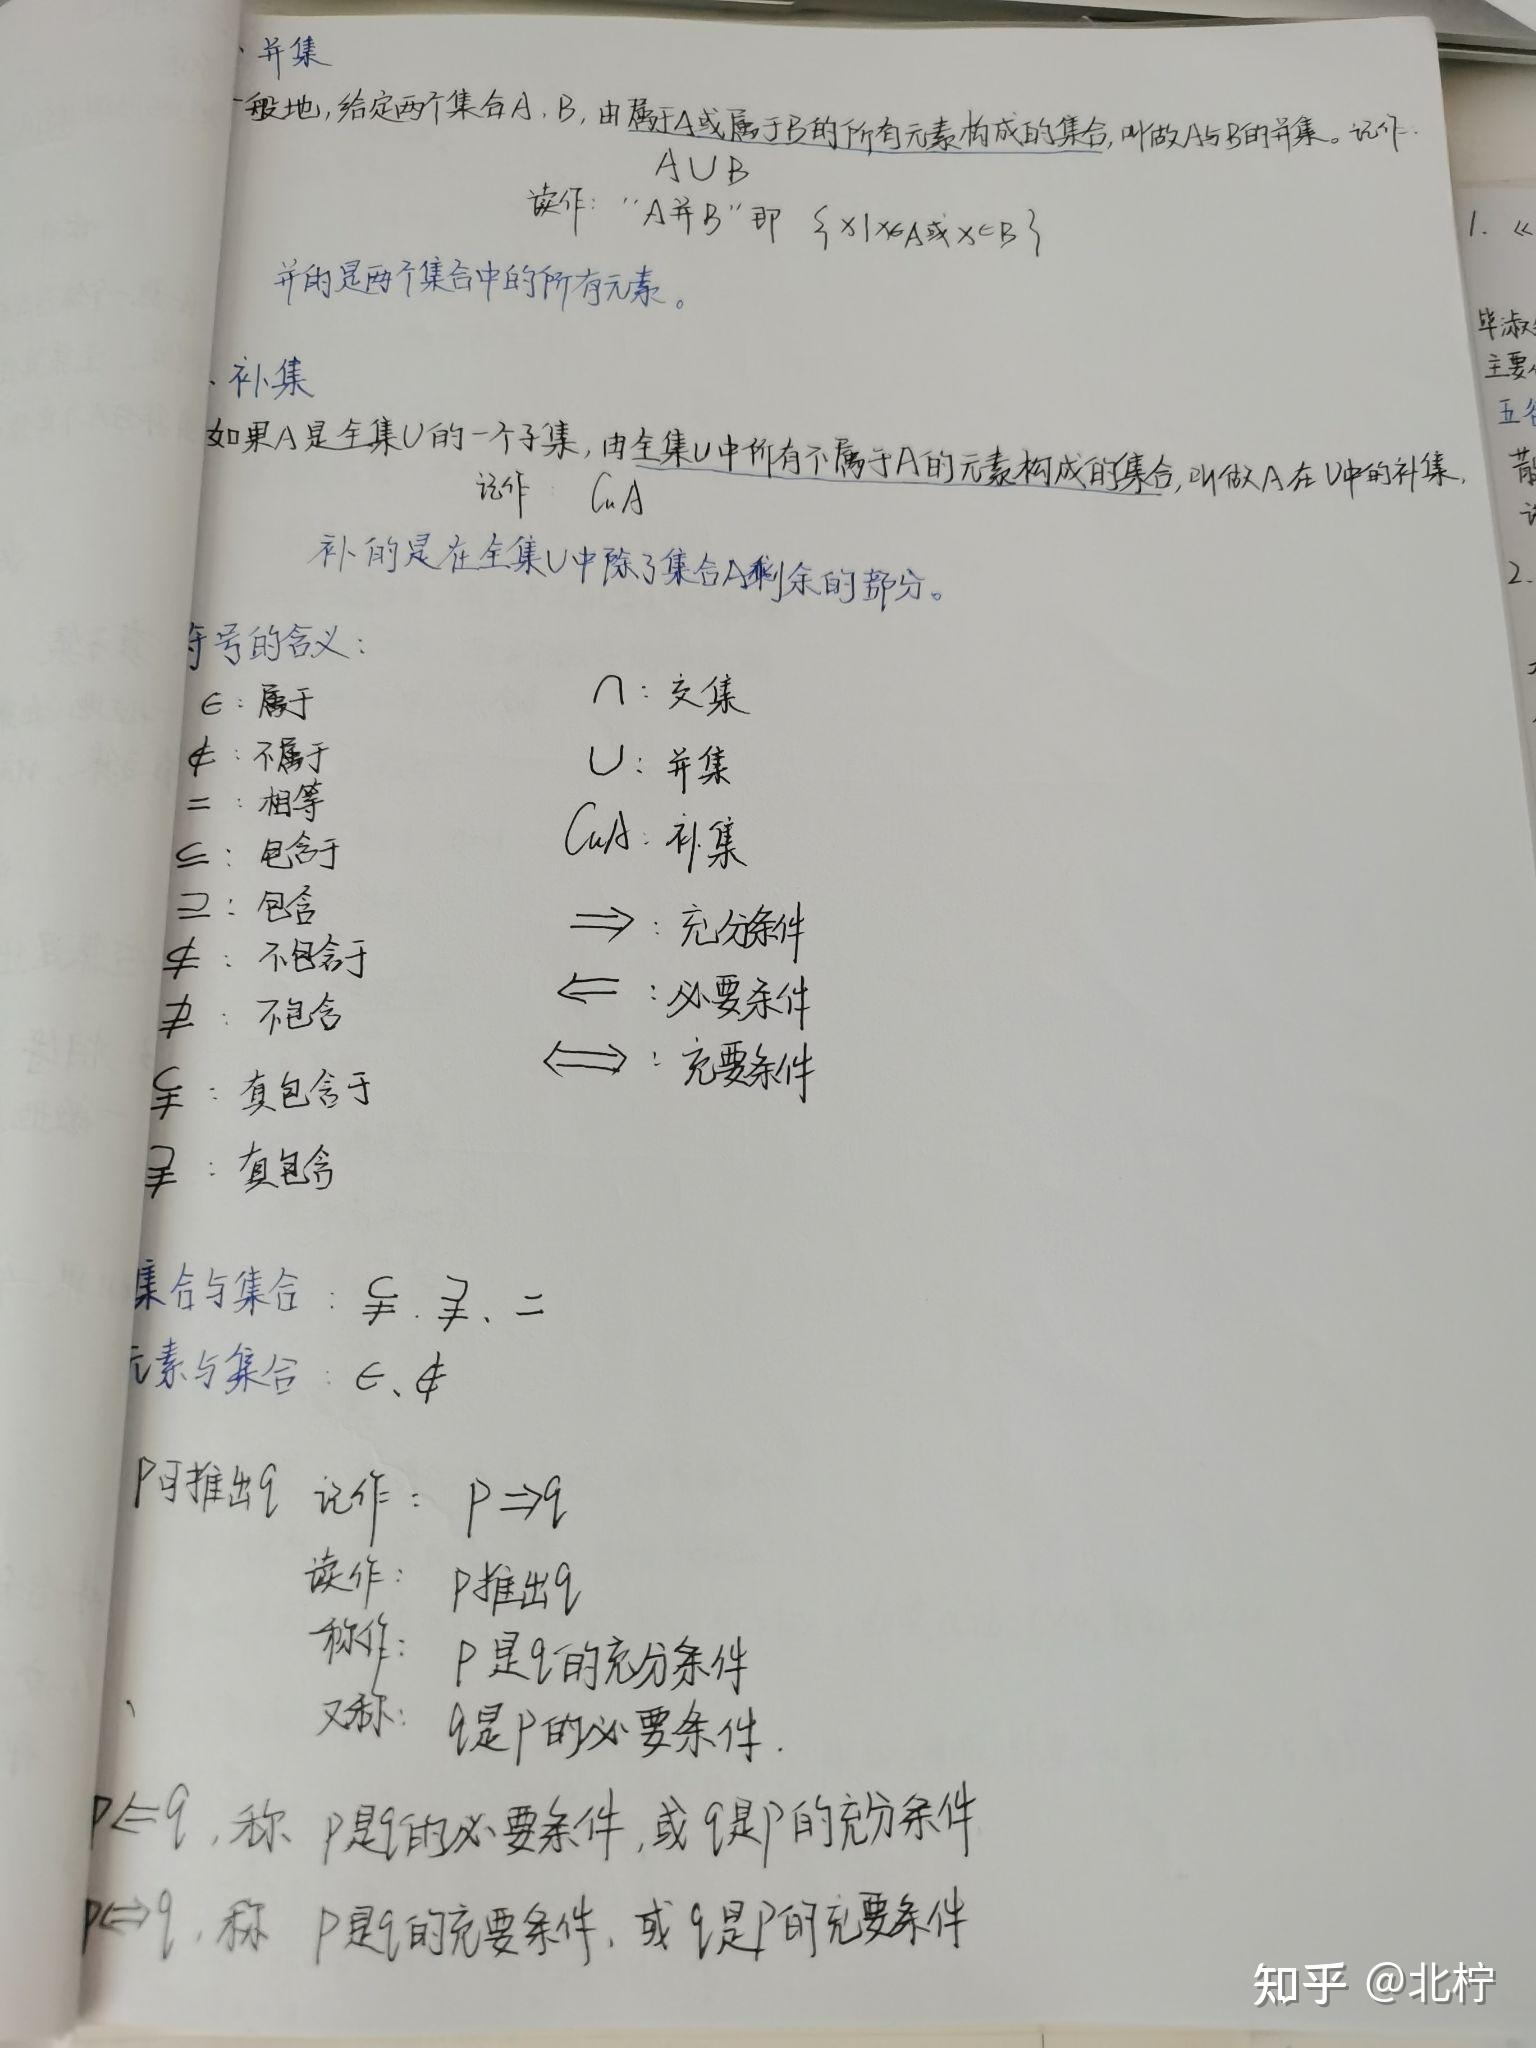 、并集
一般地,给定两个集合A、B,由属于A或属于B的所有元素构成的集合,叫做A与B的并集。记作:
A∪B
读作:"A并B"即 {x|x∈A或x∈B}
并的是两个集合中的所有元素。
、补集
如果A是全集U的一个子集,由全集U中所有不属于A的元素构成的集合,叫做A在U中的补集,
记作: CuA
补的是在全集U中除了集合A剩余的部分。
符号的含义:
∈:属于
∉:不属于
=:相等
⊆:包含于
⊇:包含
⊈:不包含于
⊉:不包含
⫋:真包含于
⫌:真包含
∩:交集
∪:并集
CuA:补集
⇒:充分条件
⇐:必要条件
⇔:充要条件
集合与集合:⫋、⫌、=
元素与集合:∈、∉
p可推出q 记作: p⇒q
读作: p推出q
称作: p是q的充分条件
又称: q是p的必要条件.
p⇐q,称 p是q的必要条件,或q是p的充分条件
p⇔q,称 p是q的充要条件,或q是p的充要条件
1. 《
毕淑
主要
五
散
2.
知乎 @北柠